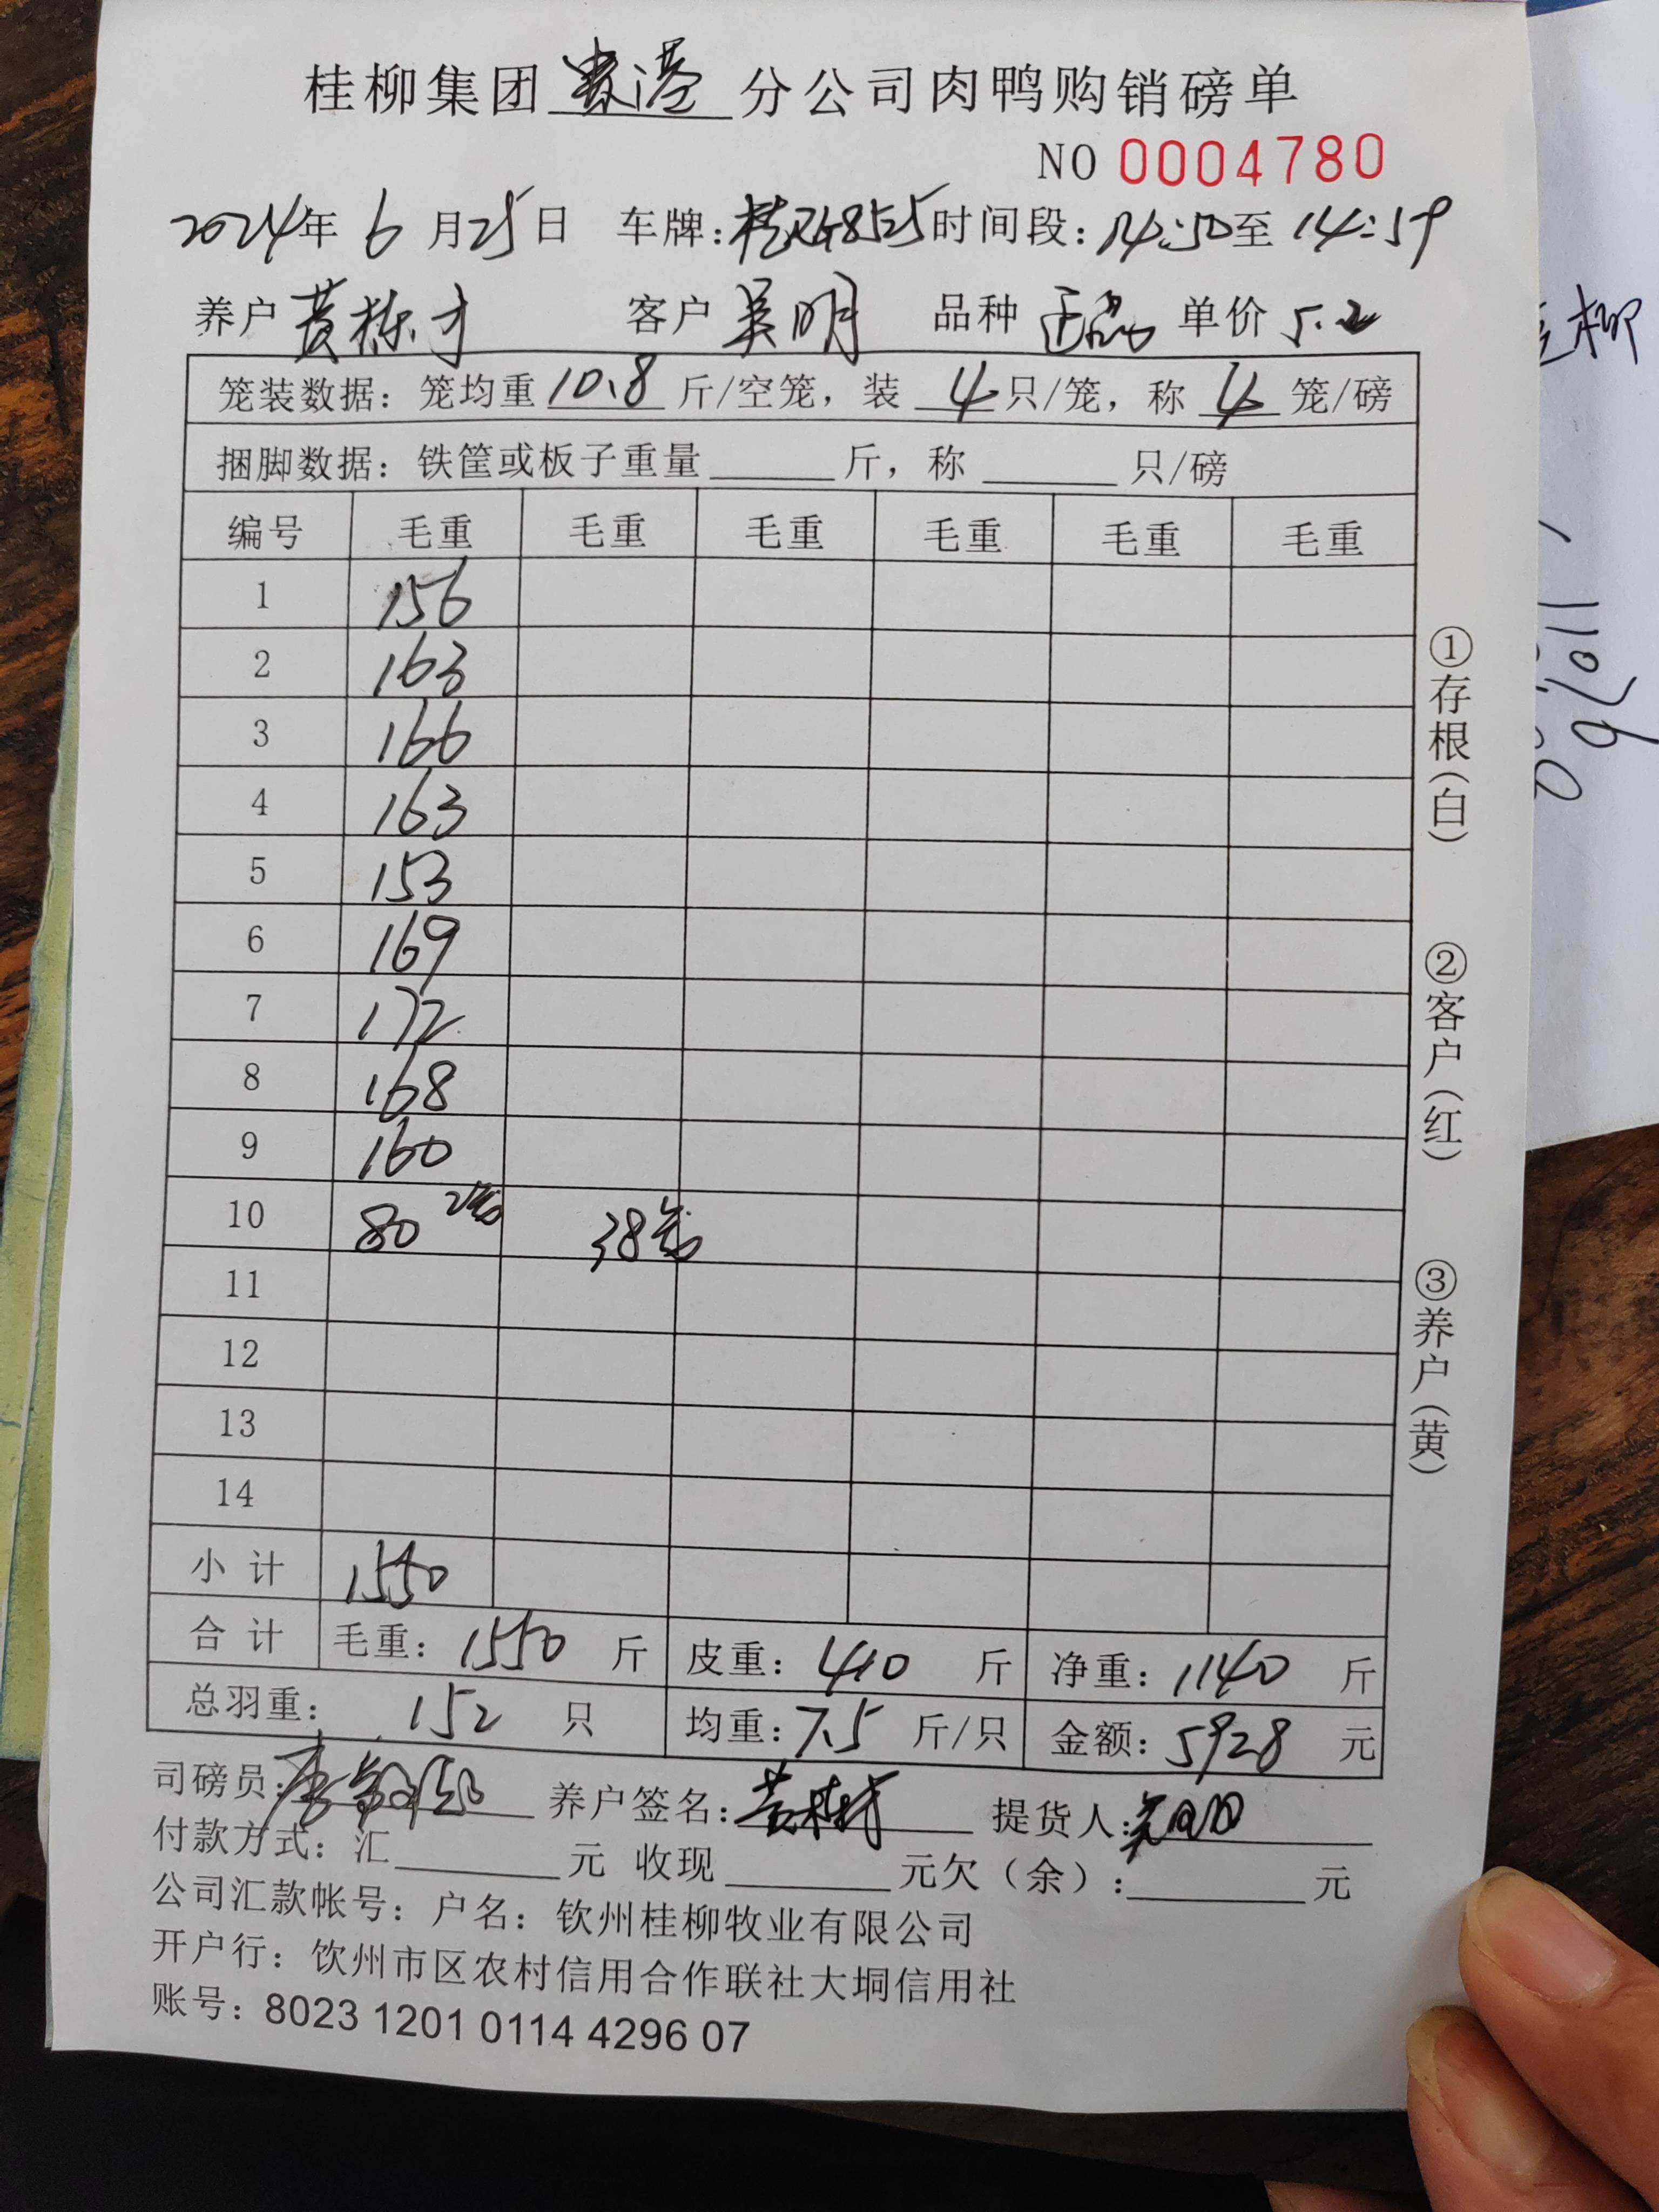 桂柳集团 贵港 分公司肉鸭购销磅单
NO 0004780
2024年 6 月 25 日 车牌: 时间段: 14:50 至 14:59
养户 黄栋才 客户 吴明 品种 正品 单价 5.2
笼装数据: 笼均重 10.8 斤/空笼, 装 4 只/笼, 称 4 笼/磅
捆脚数据: 铁筐或板子重量 ______ 斤, 称 ______ 只/磅
编号 毛重 毛重 毛重 毛重 毛重 毛重
1 156
2 163
3 166
4 163
5 153
6 169
7 172
8 168
9 160
10 80 2笼 38笼
11
12
13
14
小计 1550
合计 毛重: 1550 斤 皮重: 410 斤 净重: 1140 斤
总羽重: 152 只 均重: 7.5 斤/只 金额: 5928 元
司磅员: 养户签名: 提货人:
付款方式: 汇______元 收现______元欠(余):______元
公司汇款帐号: 户名: 钦州桂柳牧业有限公司
开户行: 饮州市区农村信用合作联社大垌信用社
账号: 8023 1201 0114 4296 07
①存根(白)
②客户(红)
③养户(黄)
柳
11076